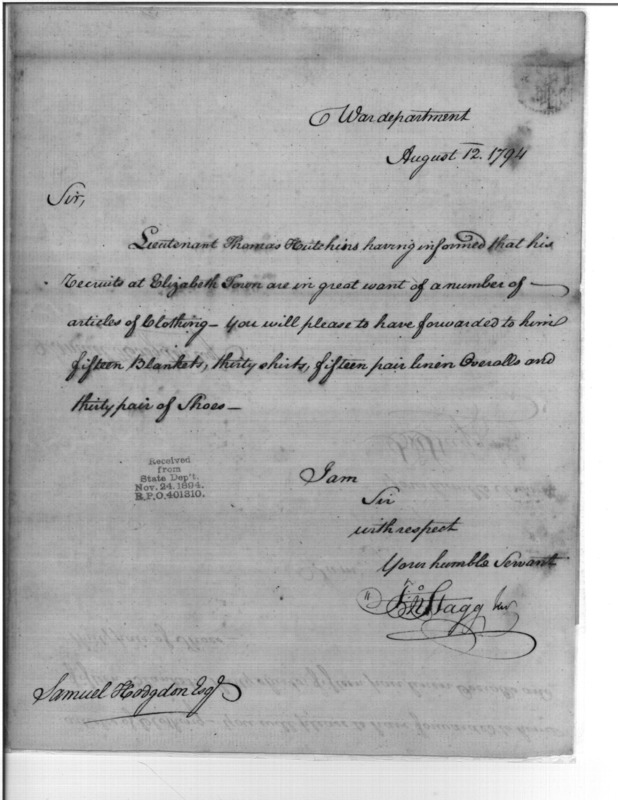 War department
August 12. 1794
Sir,
Lieutenant Thomas Hutchins having informed that his
Recruits at Elizabeth Town are in great want of a number of —
articles of Clothing — You will please to have forwarded to him
fifteen Blankets, thirty shirts, fifteen pair linen Overalls and
thirty pair of Shoes —
Received
from
State Dep't.
Nov. 24. 1894.
R.P.O. 401310.
I am
Sir
with respect
Your humble Servant
Stagg Jur
Samuel Hodgdon Esqr